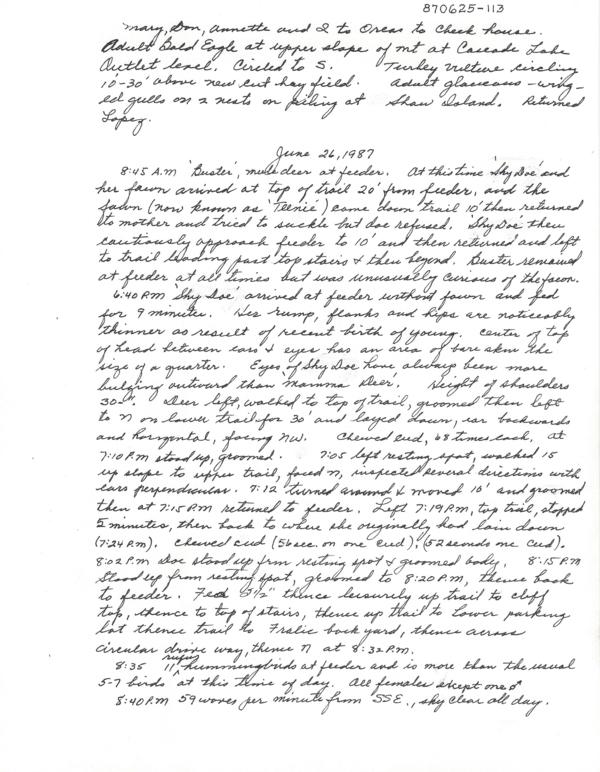 870625-113
Mary, Don, Annette and I to Orcas to check house.
Adult Bald Eagle at upper slope of mt at Cascade Lake
Outlet level. Circled to S. Turkey vulture circling
10'-30' above new cut hay field. Adult glaucous-wing-
ed gulls on 2 nests on piling at Shaw Island. Returned
Lopez.
June 26, 1987
8:45 A.M 'Buster', mule deer at feeder. At this time 'Shy Doe' and
her fawn arrived at top of trail 20' from feeder, and the
fawn (now known as 'Teenie') came down trail 10' then returned
to mother and tried to suckle but doe refused. 'Shy Doe' then
cautiously approach feeder to 10' and then returned and left
to trail leading past top stairs & then beyond. Buster remained
at feeder at all times but was unusually curious of the fawn.
6:40 P.M 'Shy Doe' arrived at feeder without fawn and fed
for 9 minutes. Her rump, flanks and hips are noticeably
thinner as result of recent birth of young. Center of top
of head between ears & eyes has an area of bare skin the
size of a quarter. Eyes of Shy Doe have always been more
bulging outward than Mamma Deer. Height of shoulders
30". Deer left, walked to top of trail, groomed then left
to N on lower trail for 30' and layed down, ear backwards
and horizontal, facing NW. Chewed cud, 68 times each, at
7:10 P.M stood up, groomed. 7:05 left resting spot, walked 15
up slope to upper trail, faced N, inspected several directions with
ears perpendicular. 7:12 turned around & moved 10' and groomed
then at 7:15 P.M returned to feeder. Left 7:19 P.M, top trail, stopped
5 minutes, then back to where she originally had lain down
(7:24 P.M). Chewed cud (56 sec. on one cud), (52 seconds one cud).
8:02 P.M Doe stood up from resting spot & groomed body. 8:15 P.M
Stood up from resting spot, groomed to 8:20 P.M, thence back
to feeder. Fed thence leisurely up trail to cliff
top, thence to top of stairs, thence up trail to lower parking
lot thence trail to Fralic back yard, thence across
circular drive way, thence N at 8:32 P.M.
8:35 11 rufus hummingbirds at feeder and is more than the usual
5-7 birds at this time of day. All females except one ♂
8:40 P.M 59 waves per minute from SSE., sky clear all day.